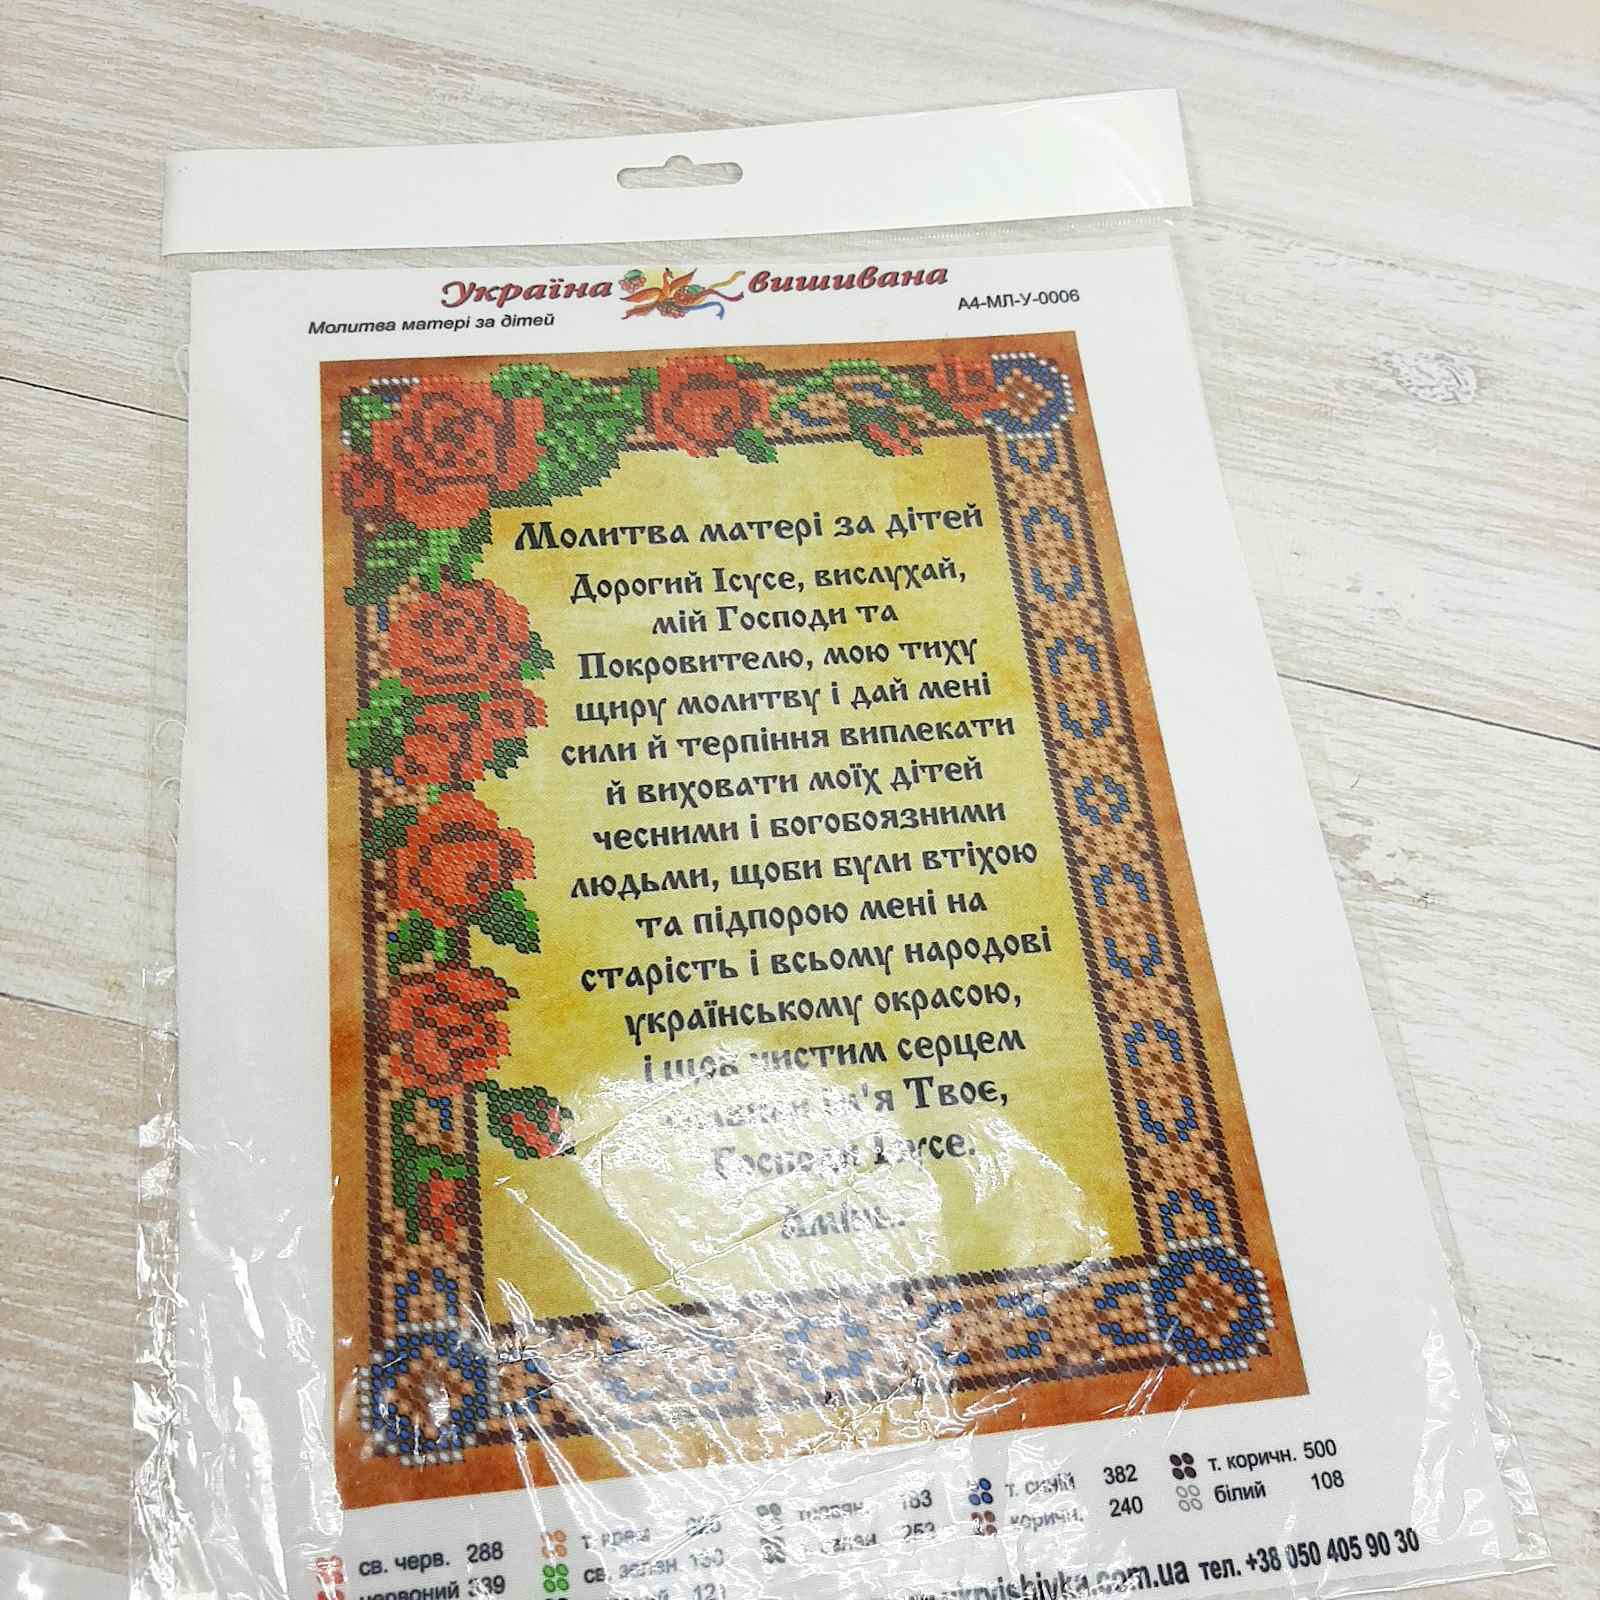 Україна вишивана
Молитва матері за дітей
А4-МЛ-У-0006
Молитва матері за дітей
Дорогий Ісусе, вислухай,
мій Господи та
Покровителю, мою тиху
щиру молитву і дай мені
сили й терпіння виплекати
й виховати моїх дітей
чесними і богобоязними
людьми, щоби були втіхою
та підпорою мені на
старість і всьому народові
українському окрасою,
і щоб чистим серцем
ім'я Твоє,
Господи Ісусе.
Амінь.
св. черв. 288
червоний 339
св. зелен. 130
121
163
253
т. синій 382
коричн. 240
т. коричн. 500
білий 108
тел. +38 050 405 90 30